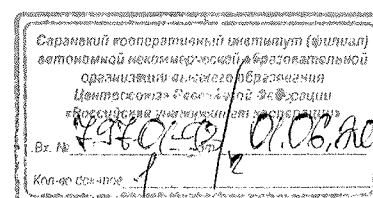 Саранский кооперативный институт (филиал)
автономной некоммерческой образовательной
организации высшего образования
Центросоюза Российской Федерации
«Российский университет кооперации»
Вх. № 01.06.20
Кол-во 1